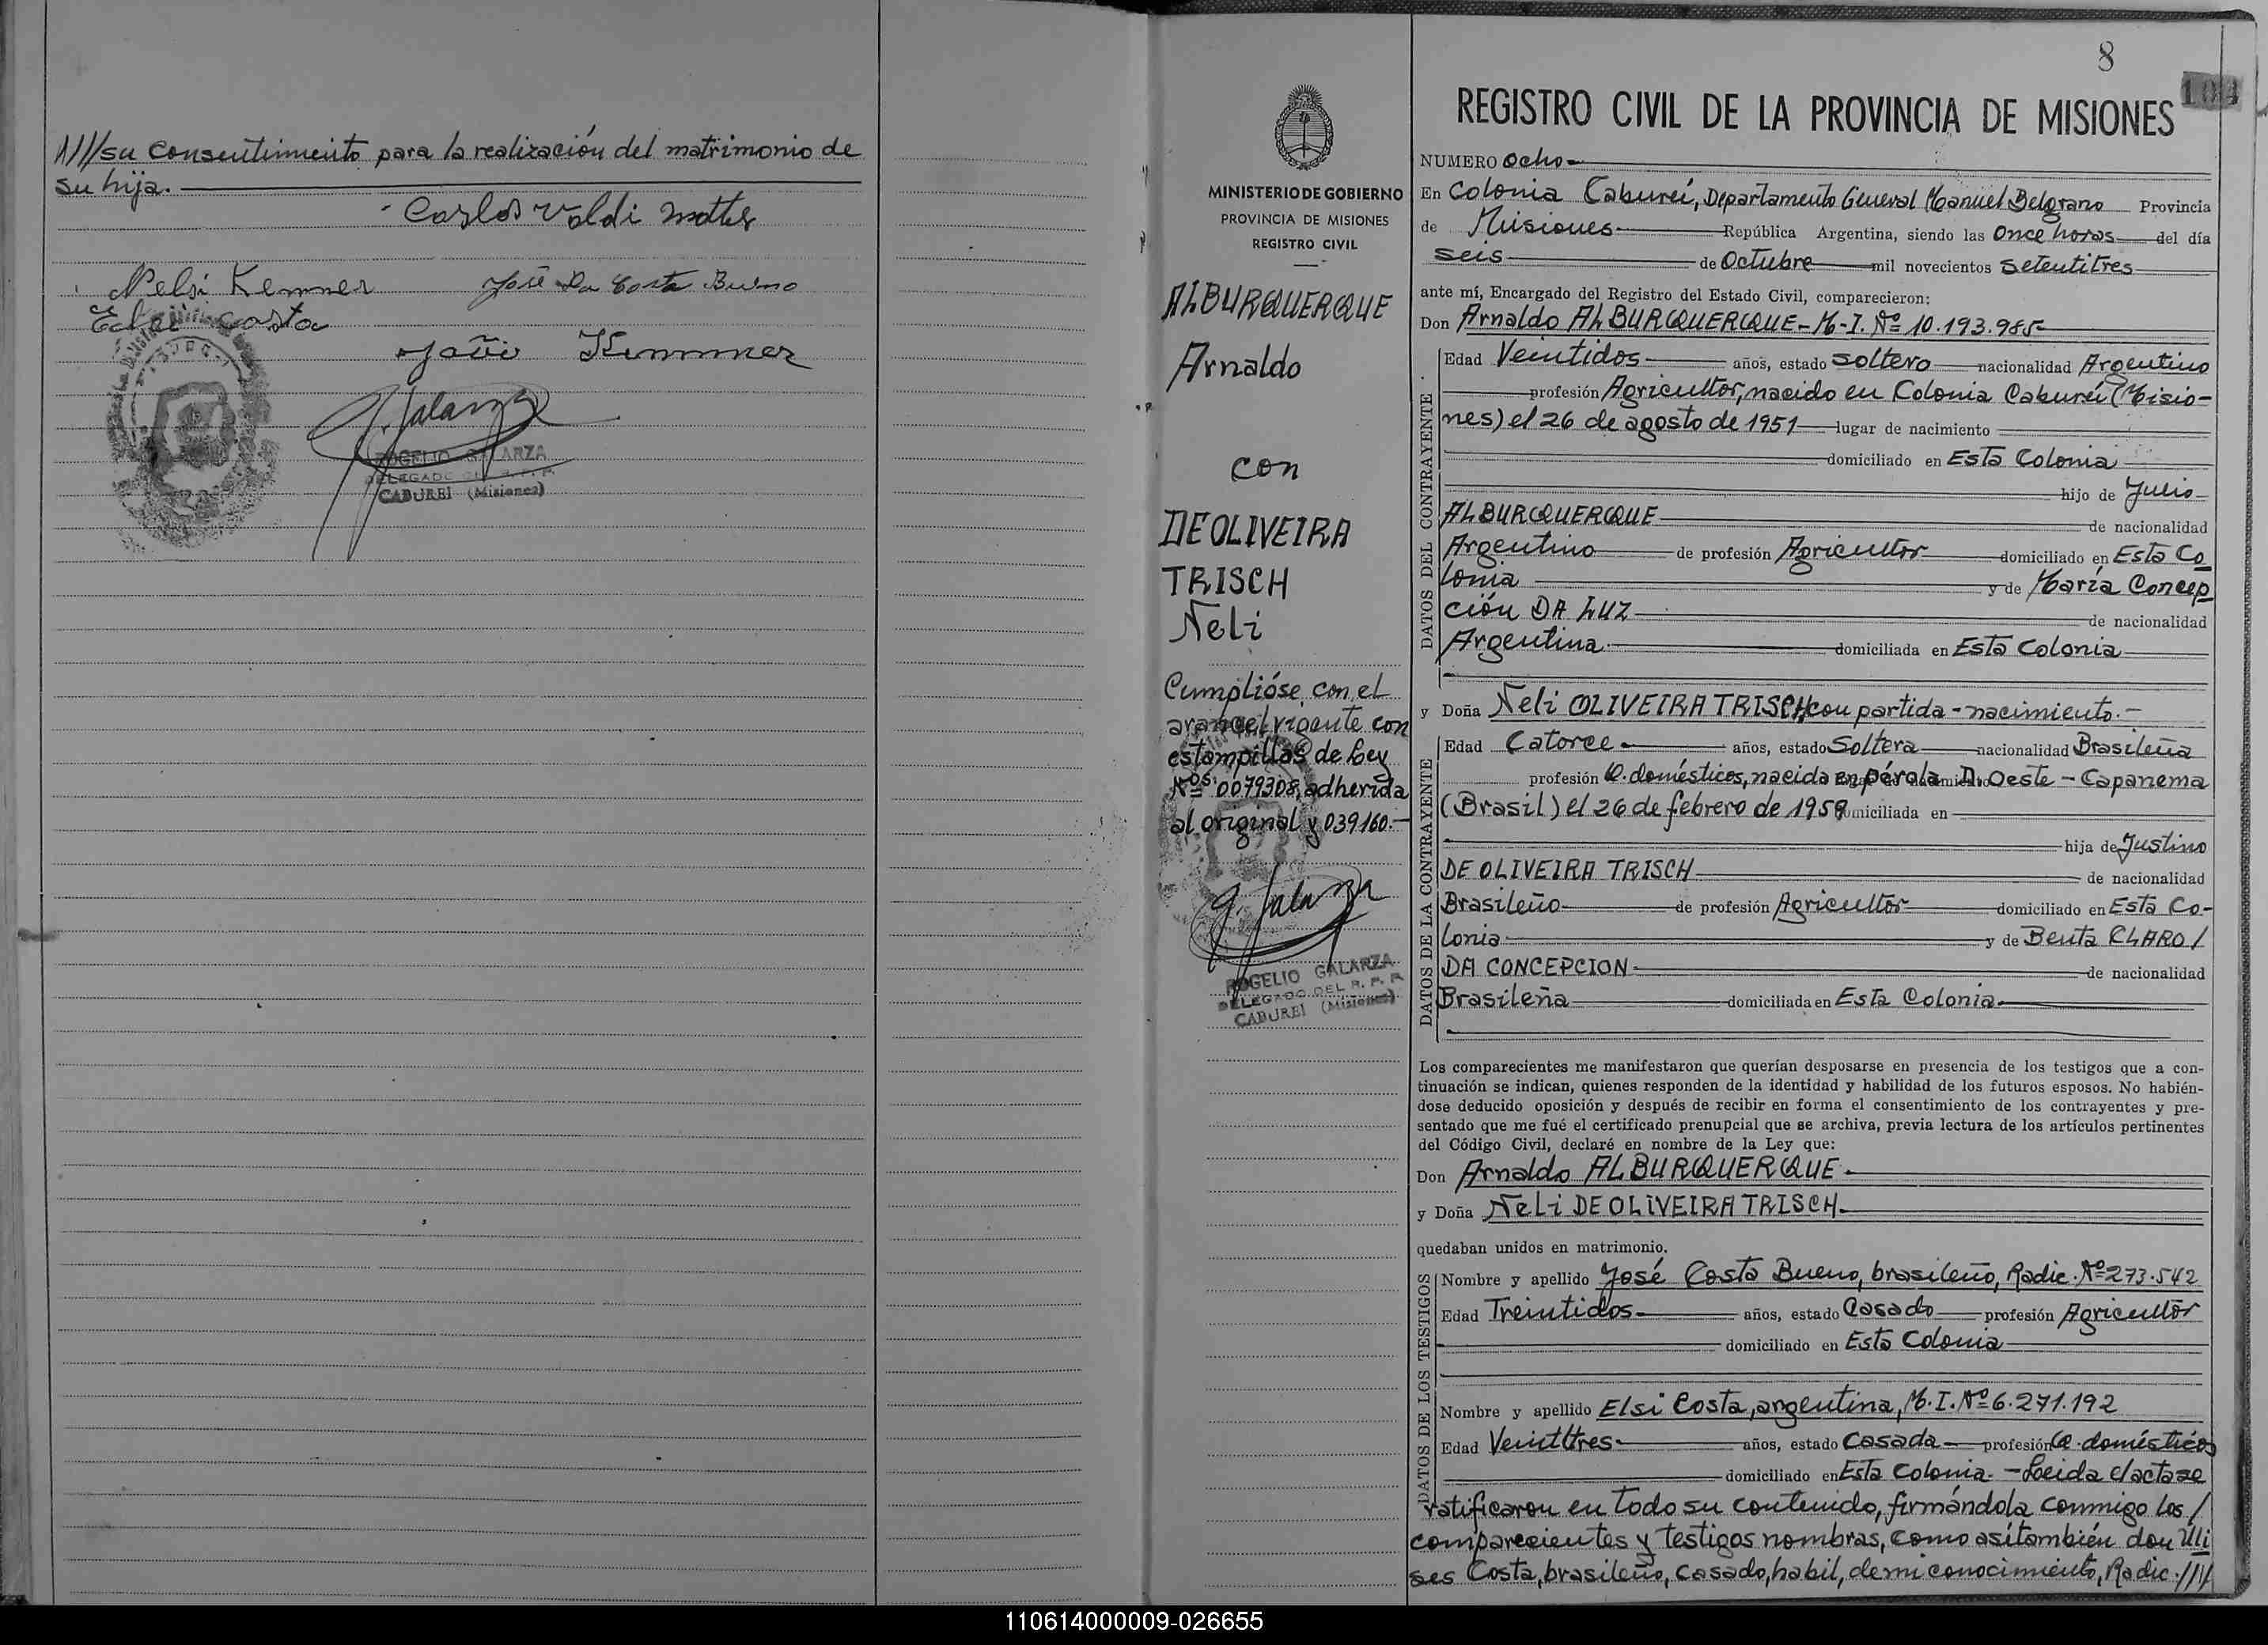 ///su consentimiento para la realización del matrimonio de
su hija.
Carlos Valdi Mattes
Nelsi Kemner
José Da Costa Bueno
Elsi Costa
Kemmner
R. Galarza
ROGELIO GALARZA
DELEGADO DEL R. P. P.
CABUREI (Misiones)
MINISTERIO DE GOBIERNO
PROVINCIA DE MISIONES
REGISTRO CIVIL
ALBURQUERQUE
Arnaldo
con
DE OLIVEIRA
TRISCH
Neli
Cumplióse con el
arancel vigente con
estampillas de Ley
Nºs. 0079308, adherida
al original y 039160.-
R. Galarza
ROGELIO GALARZA
DELEGADO DEL R. P. P.
CABUREI (Misiones)
8
104
REGISTRO CIVIL DE LA PROVINCIA DE MISIONES
NUMERO Ocho
En Colonia Cabureí, Departamento General Manuel Belgrano Provincia
de Misiones República Argentina, siendo las Once horas del día
seis de Octubre mil novecientos setentitres
ante mí, Encargado del Registro del Estado Civil, comparecieron:
Don Arnaldo ALBURQUERQUE - M-I. Nº 10.193.985
DATOS DEL CONTRAYENTE
Edad Veintidos años, estado soltero nacionalidad Argentino
profesión Agricultor, nacido en Colonia Cabureí (Misio-
nes) el 26 de agosto de 1951 lugar de nacimiento
domiciliado en Esta Colonia
hijo de Julio
ALBURQUERQUE de nacionalidad
Argentino de profesión Agricultor domiciliado en Esta Co
lonia y de María Concep
ción DA LUZ de nacionalidad
Argentina domiciliada en Esta Colonia
y Doña Neli OLIVEIRA TRISCH con partida - nacimiento.-
DATOS DE LA CONTRAYENTE
Edad Catorce años, estado Soltera nacionalidad Brasileña
profesión Q. domésticos, nacida en pérola D. Oeste - Capanema
(Brasil) el 26 de febrero de 1959 domiciliada en
hija de Justino
DE OLIVEIRA TRISCH de nacionalidad
Brasileño de profesión Agricultor domiciliado en Esta Co-
lonia y de Benta CLARO /
DA CONCEPCION de nacionalidad
Brasileña domiciliada en Esta Colonia
Los comparecientes me manifestaron que querían desposarse en presencia de los testigos que a con-
tinuación se indican, quienes responden de la identidad y habilidad de los futuros esposos. No habién-
dose deducido oposición y después de recibir en forma el consentimiento de los contrayentes y pre-
sentado que me fué el certificado prenupcial que se archiva, previa lectura de los artículos pertinentes
del Código Civil, declaré en nombre de la Ley que:
Don Arnaldo ALBURQUERQUE
y Doña Neli DE OLIVEIRA TRISCH
quedaban unidos en matrimonio.
DATOS DE LOS TESTIGOS
Nombre y apellido José Costa Bueno, brasileño, Radic. Nº 273.542
Edad Treintidos años, estado Casado profesión Agricultor
domiciliado en Esta Colonia
Nombre y apellido Elsi Costa, argentina, M.I. Nº 6.271.192
Edad Veintitres años, estado Casada profesión Q. domésticos
domiciliado en Esta Colonia. - Leida el acta se
ratificaron en todo su contenido, firmándola conmigo los /
comparecientes y testigos nombras, como asítambién don Uli
ses Costa, brasileño, casado, habil, de mi conocimiento, Radic. ///
110614000009-026655